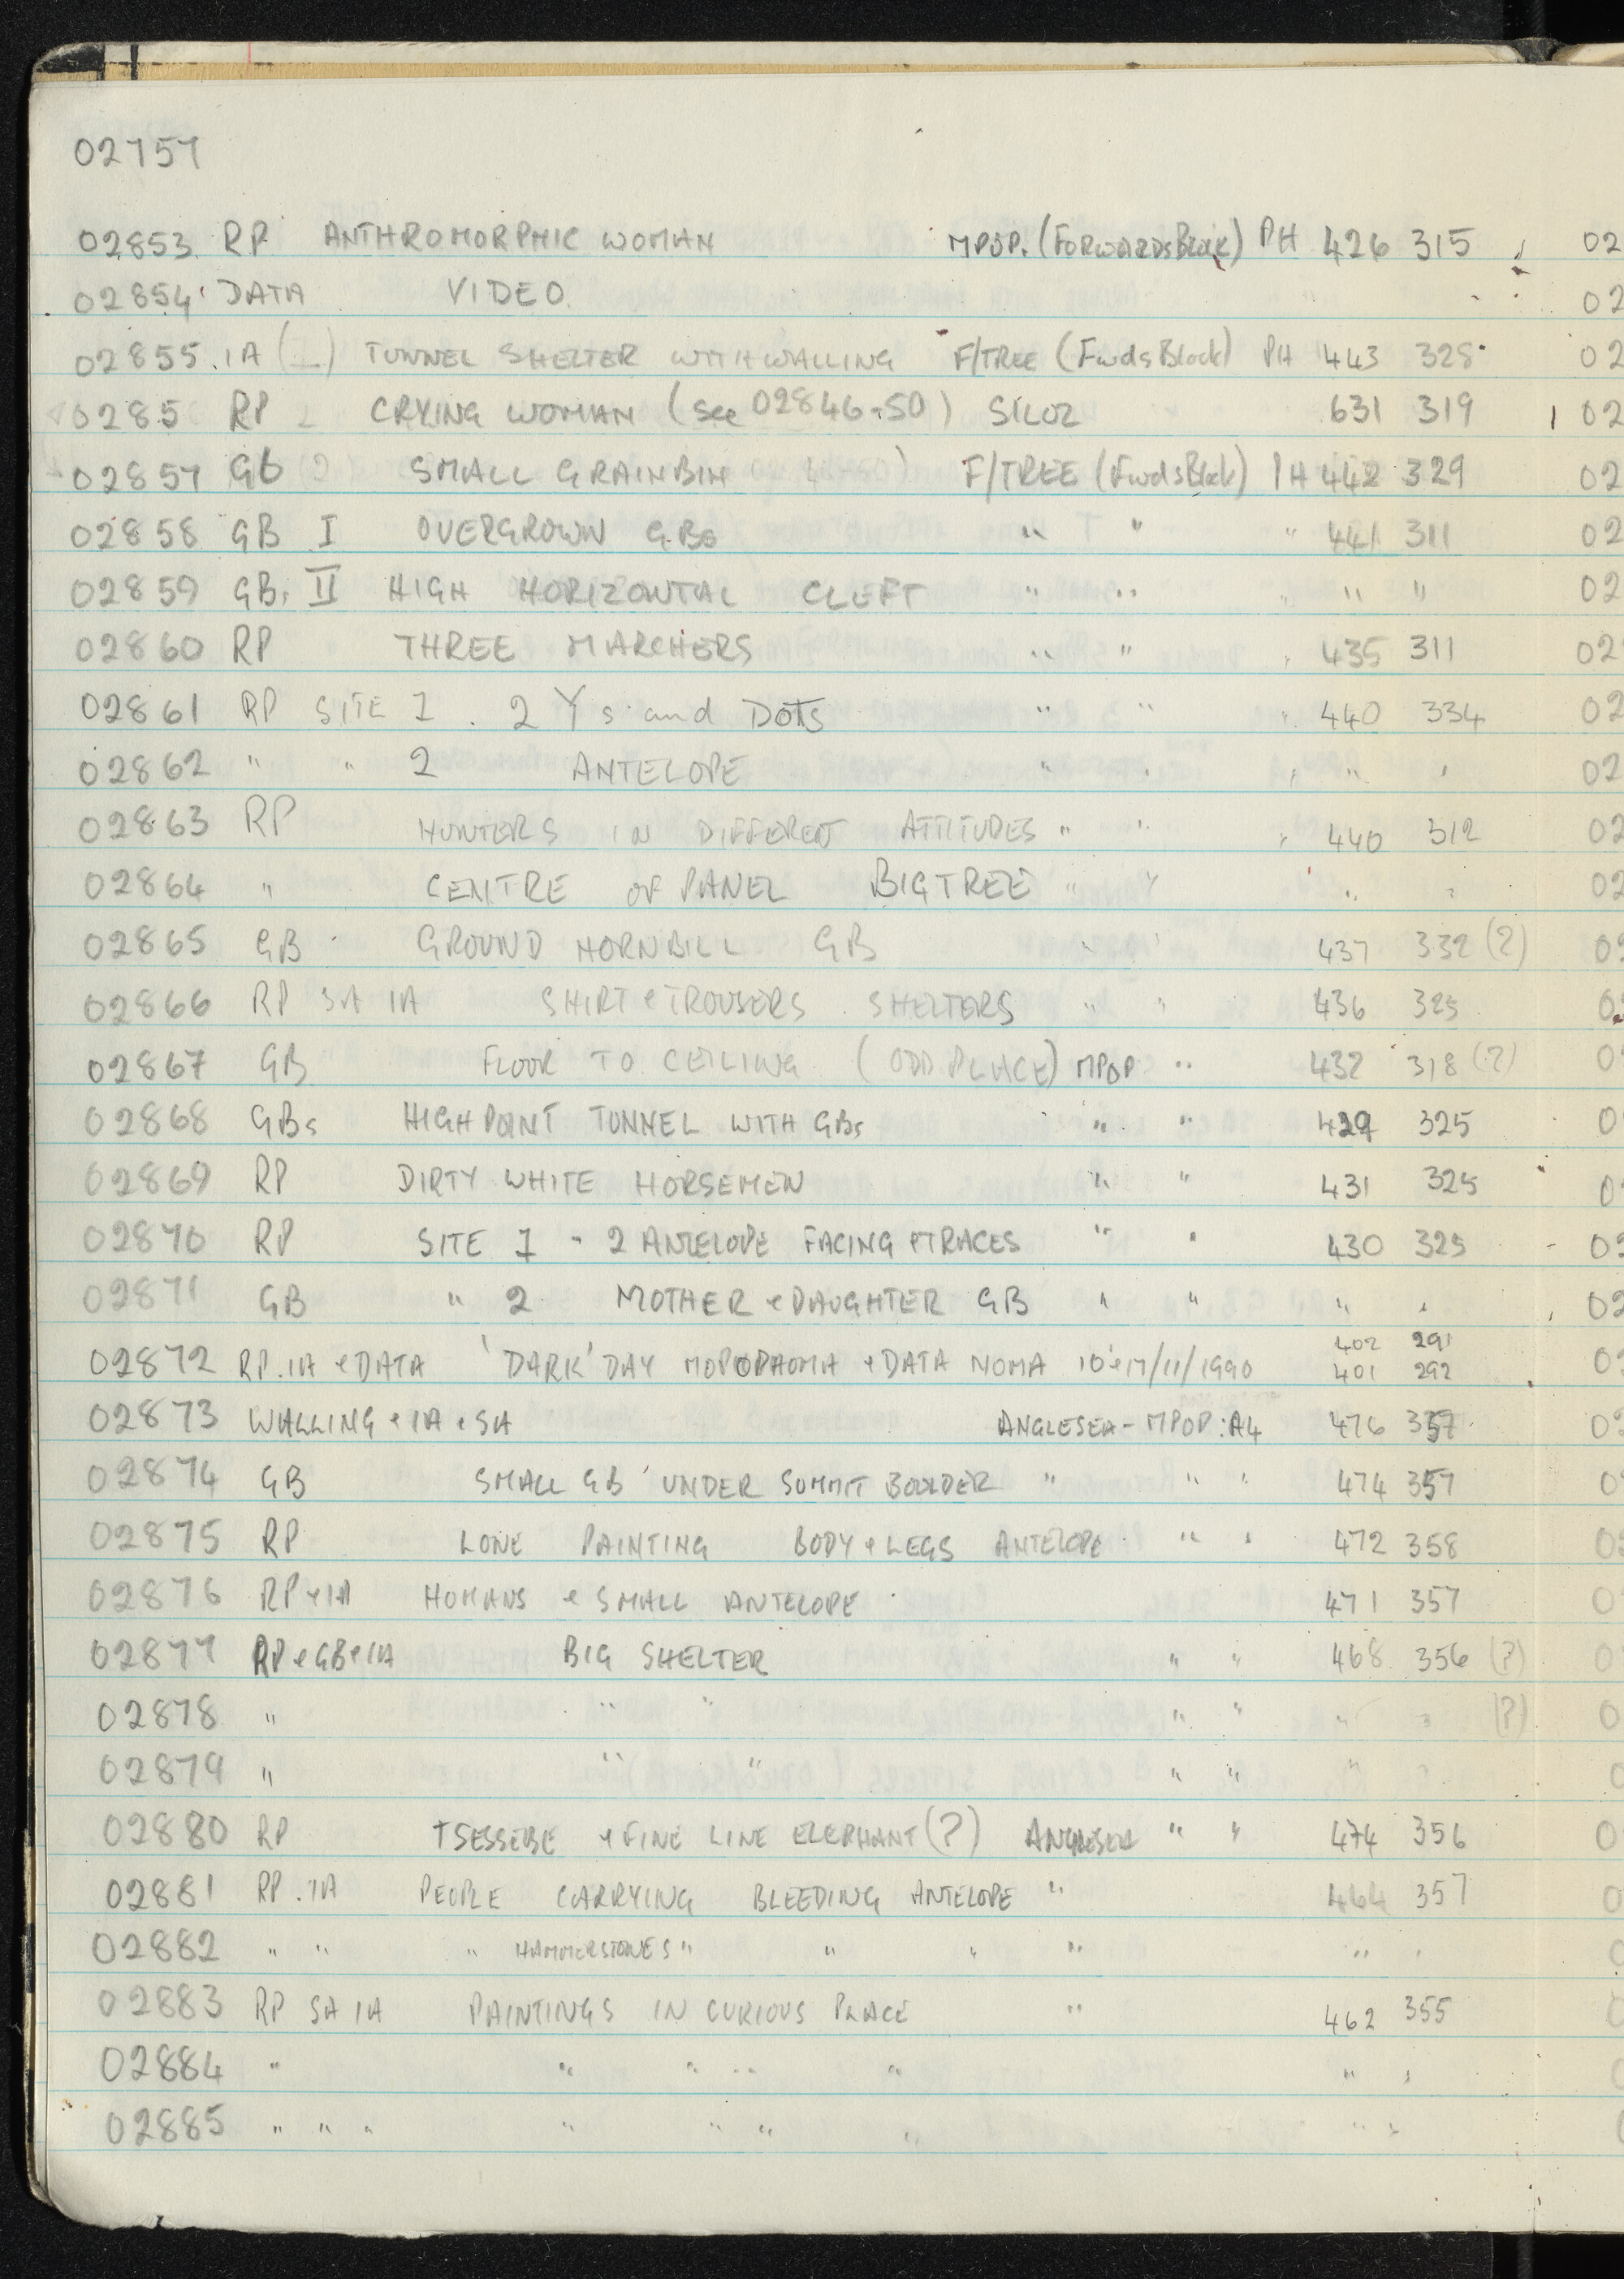 02757
02853 RP ANTHROMORPHIC WOMAN MPOP. (FORWARDS Block) PH 426 315 02
02854 DATA VIDEO 02
02855. IA (—) TUNNEL SHELTER WITH WALLING F/TREE (Fwds Block) PH 443 328 02
0285 RP CRYING WOMAN (see 02846-50) SILOZ 631 319 02
02857 GB SMALL GRAINBIN F/TREE (Fwds Block) PH 442 329 02
02858 GB I OVERGROWN GBs " " " 441 311 02
02859 GB. II HIGH HORIZONTAL CLEFT " " " " " 02
02860 RP THREE MARCHERS " " " 435 311 02
02861 RP SITE 1. 2 Ys and DOTS " " " 440 334 02
02862 " " 2 ANTELOPE " " " " " 02
02863 RP HUNTERS IN DIFFERENT ATTITUDES " " " 440 312 02
02864 " CENTRE OF PANEL BIG TREE " " " " 02
02865 GB GROUND HORNBILL GB " " 437 332 (?) 02
02866 RP SA IA SHIRT & TROUSERS SHELTERS " " 436 325 0
02867 GB FLOOR TO CEILING (ODD PLACE) MPOP " 432 318 (?) 0
02868 GBs HIGH POINT TUNNEL WITH GBs " " 429 325 0
02869 RP DIRTY WHITE HORSEMEN " " 431 325 0
02870 RP SITE 1 - 2 ANTELOPE FACING & TRACES " " 430 325 02
02871 GB " 2 MOTHER & DAUGHTER GB " " " " 02
402 291
02872 RP. IA & DATA 'DARK' DAY MOPOPHOMA & DATA NOMA 10 & 17/11/1990 401 292 0
02873 WALLING & IA & SA ANGLESEA - MPOP: A4 476 357 02
02874 GB SMALL GB UNDER SUMMIT BOULDER " " " 474 357 0
02875 RP LONE PAINTING BODY & LEGS ANTELOPE " " 472 358 0
02876 RP & IA HUMANS & SMALL ANTELOPE 471 357 0
02877 RP & GB & IA BIG SHELTER " " 468 356 (?) 0
02878 " " " " " " " (?) 0
02879 " " " " " " 0
02880 RP TSESSEBE & FINE LINE ELEPHANT (?) ANGLESEA " " 474 356 0
02881 RP. IA PEOPLE CARRYING BLEEDING ANTELOPE " 464 357 0
02882 " " " HAMMERSTONES " " " " " " 0
02883 RP SA IA PAINTINGS IN CURIOUS PLACE " 462 355
02884 " " " " " " "
02885 " " " " " " " " "